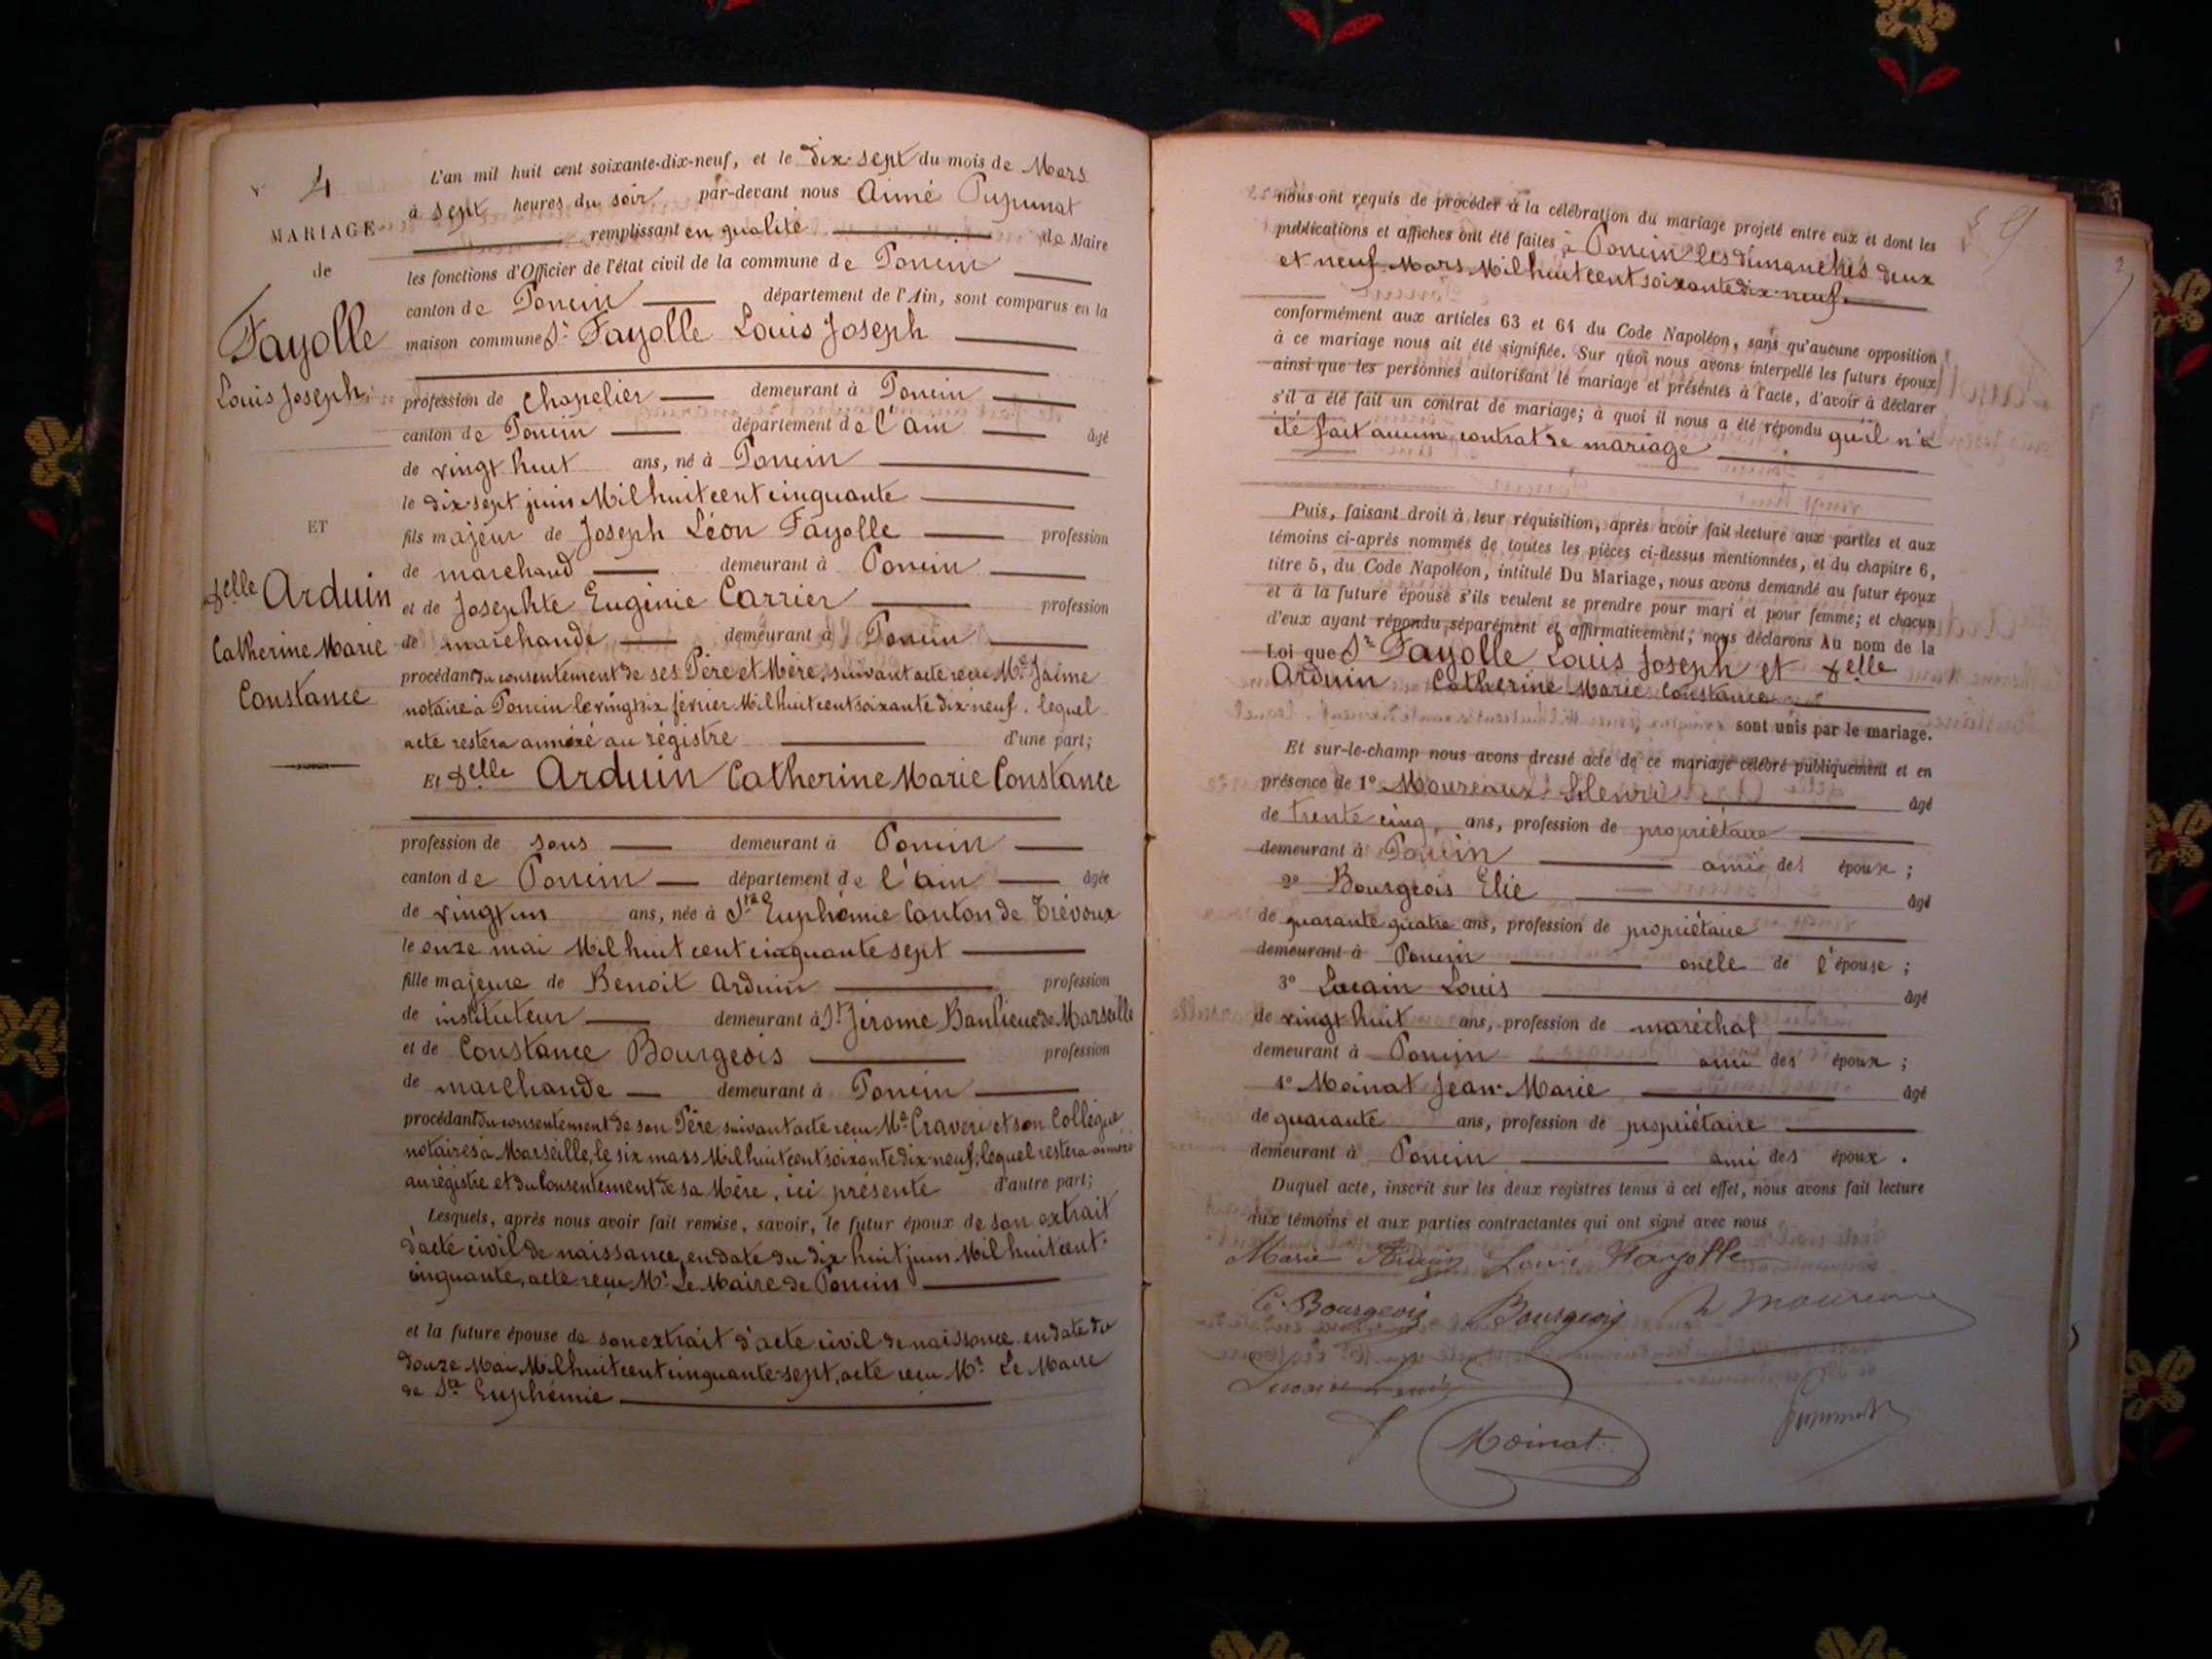 4
MARIAGE
de
Fayolle
Louis Joseph
ET
Delle Arduin
Catherine Marie
Constance
L'an mil huit cent soixante-dix-neuf, et le dix-sept du mois de Mars
à sept heures du soir par-devant nous Aimé Pupunat
remplissant en qualité de Maire
les fonctions d'Officier de l'état civil de la commune de Poncin
canton de Poncin département de l'Ain, sont comparus en la
maison commune Sr Fayolle Louis Joseph
profession de chapelier demeurant à Poncin
canton de Poncin département de l'ain âgé
de vingt huit ans, né à Poncin
le dix-sept juin Mil huit cent cinquante
fils majeur de Joseph Léon Fayolle profession
de marchand demeurant à Poncin
et de Josephte Eugénie Carrier profession
de marchande demeurant à Poncin
procédant du consentement de ses Père et Mère, suivant acte reçu Me Jaime
notaire à Poncin le vingt six février Mil huit cent soixante dix-neuf. lequel
acte restera annéxé au régistre d'une part;
Et Delle Arduin Catherine Marie Constance
profession de sans demeurant à Poncin
canton de Poncin département de l'ain âgée
de vingt un ans, née à Ste Euphémie Canton de Trévoux
le onze mai Mil huit cent cinquante sept
fille majeure de Benoit Arduin profession
de instituteur demeurant à St Jérome, Banlieue de Marseille
et de Constance Bourgeois profession
de marchande demeurant à Poncin
procédant du consentement de son Père, suivant acte reçu Me Craveri et son Collègue
notaires à Marseille, le six mars Mil huit cent soixante dix-neuf, lequel restera annexé
au régistre et du Consentement de sa Mère, ici présente d'autre part;
Lesquels, après nous avoir fait remise, savoir, le futur époux de son extrait
d'acte civil de naissance, en date du dix huit juin Mil huit cent
cinquante, acte reçu Mr Le Maire de Poncin
et la future épouse de son extrait d'acte civil de naissance en date du
douze Mai Mil huit cent cinquante-sept, acte reçu Mr Le Maire
de Ste Euphémie
nous ont requis de procéder à la célébration du mariage projeté entre eux et dont les
publications et affiches ont été faites à Poncin les dimanches deux
et neuf Mars Mil huit cent soixante dix-neuf
conformément aux articles 63 et 64 du Code Napoléon, sans qu'aucune opposition
à ce mariage nous ait été signifiée. Sur quoi nous avons interpellé les futurs époux
ainsi que les personnes autorisant le mariage et présentes à l'acte, d'avoir à déclarer
s'il a été fait un contrat de mariage; à quoi il nous a été répondu qu'il n'a
été fait aucun contrat de mariage
Puis, faisant droit à leur réquisition, après avoir fait lecture aux parties et aux
témoins ci-après nommés de toutes les pièces ci-dessus mentionnées, et du chapitre 6,
titre 5, du Code Napoléon, intitulé Du Mariage, nous avons demandé au futur époux
et à la future épouse s'ils veulent se prendre pour mari et pour femme; et chacun
d'eux ayant répondu séparément et affirmativement, nous déclarons Au nom de la
Loi que Sr Fayolle Louis Joseph et Delle
Arduin Catherine Marie Constance
sont unis par le mariage.
Et sur-le-champ nous avons dressé acte de ce mariage célébré publiquement et en
présence de 1o Moureaux Henri âgé
de trente cinq ans, profession de propriétaire
demeurant à Poncin ami des époux ;
2o Bourgeois Elie âgé
de quarante quatre ans, profession de propriétaire
demeurant à Poncin oncle de l'épouse ;
3o Louis âgé
de vingt huit ans, profession de maréchal
demeurant à Poncin ami des époux ;
4o Moinat Jean-Marie âgé
de quarante ans, profession de propriétaire
demeurant à Poncin ami des époux .
Duquel acte, inscrit sur les deux registres tenus à cet effet, nous avons fait lecture
aux témoins et aux parties contractantes qui ont signé avec nous
Marie Arduin Louis Fayolle
C. Bourgeois Bourgeois h moureaux
Moinat